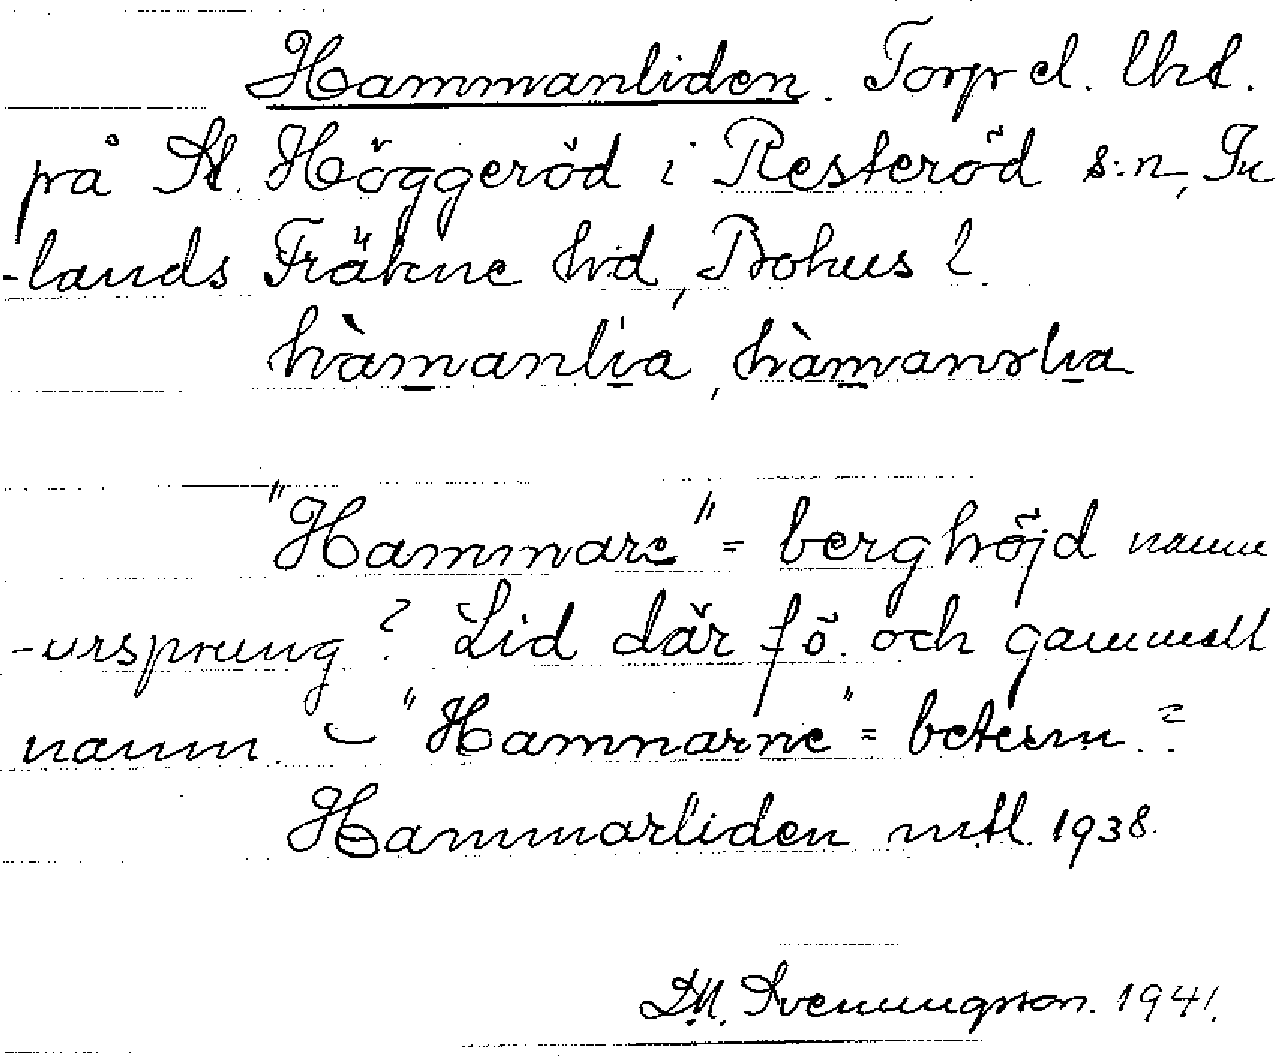 Hammanliden. Torp el. lht.
på St. Höggeröd i Resteröd s:n, In
-lands Fräkne hd, Bohus l.
hàmanlia, hàmanslia
"Hammare" = berghöjd namn
-ursprung? Lid där fö. och gammalt
namn. – "Hammarne" = beterm.?
Hammarliden mtl. 1938.
Svenningsson. 1941.